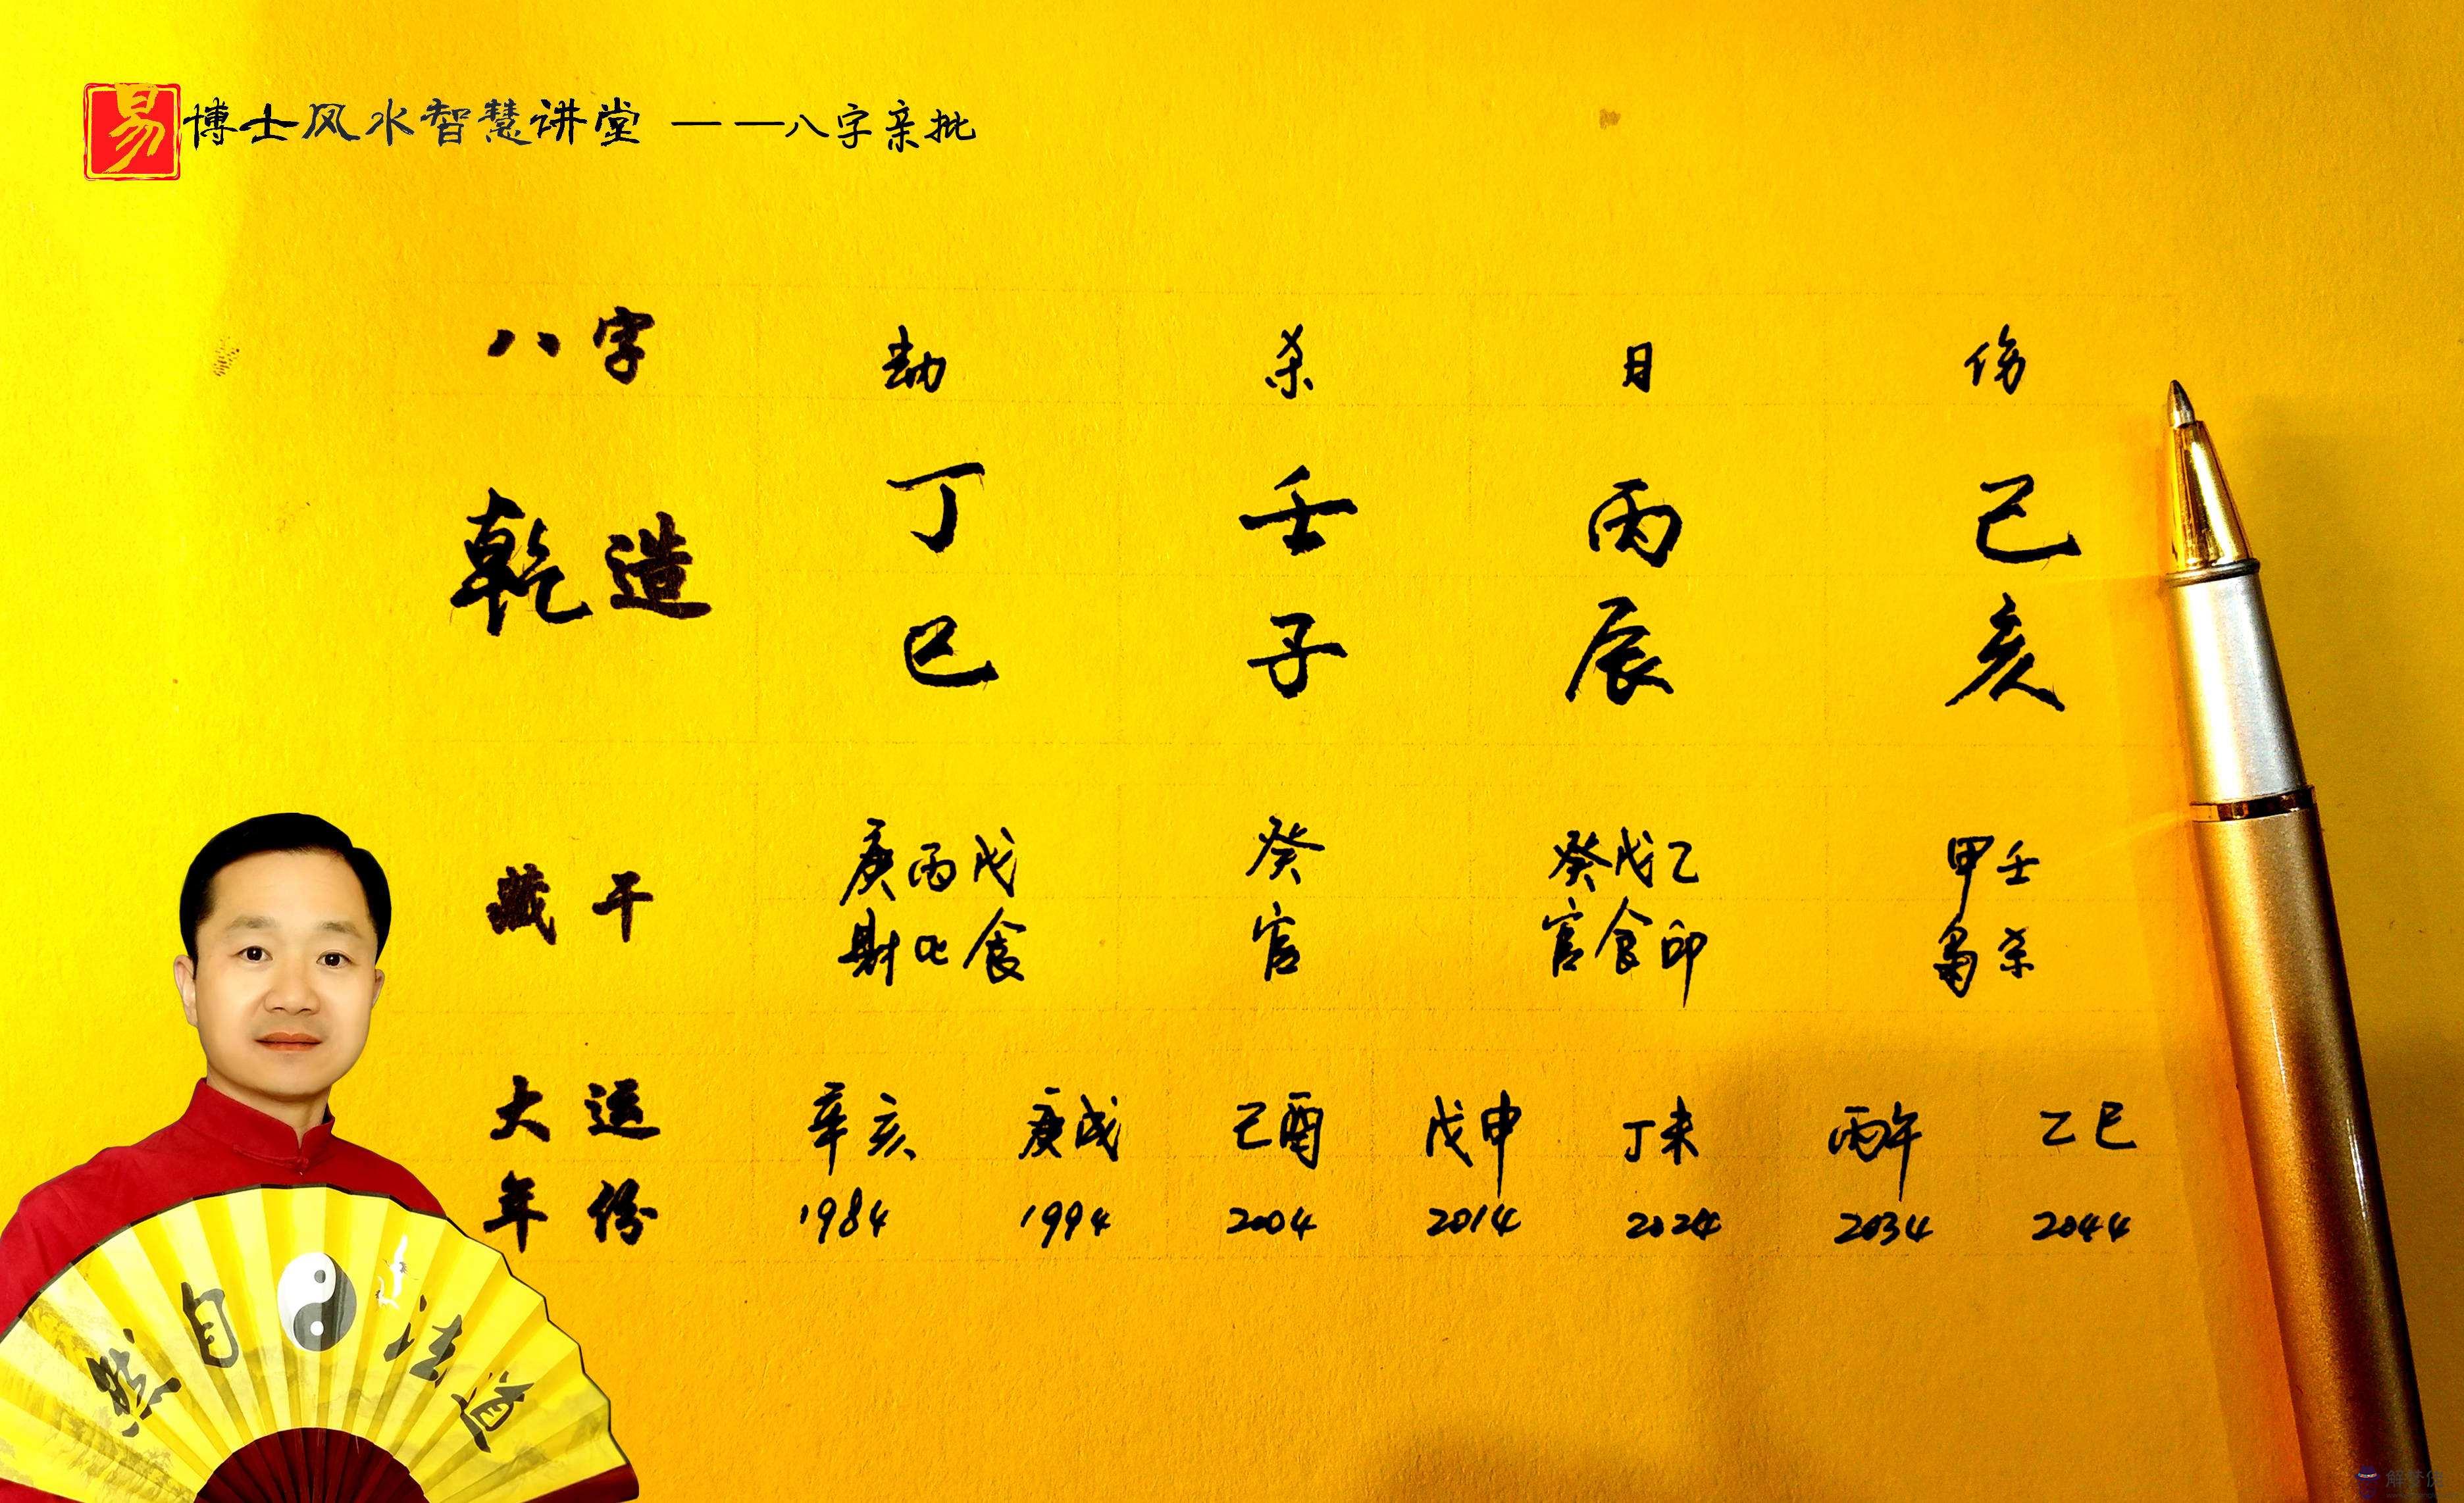 易博士风水智慧讲堂 ——八字亲批
八字 劫 杀 日 伤
乾造 丁 壬 丙 己
巳 子 辰 亥
藏干 庚丙戊 癸 癸戊乙 甲壬
财比食 官 官食印 枭杀
大运 辛亥 庚戌 己酉 戊申 丁未 丙午 乙巳
年份 1984 1994 2004 2014 2024 2034 2044
道法自然